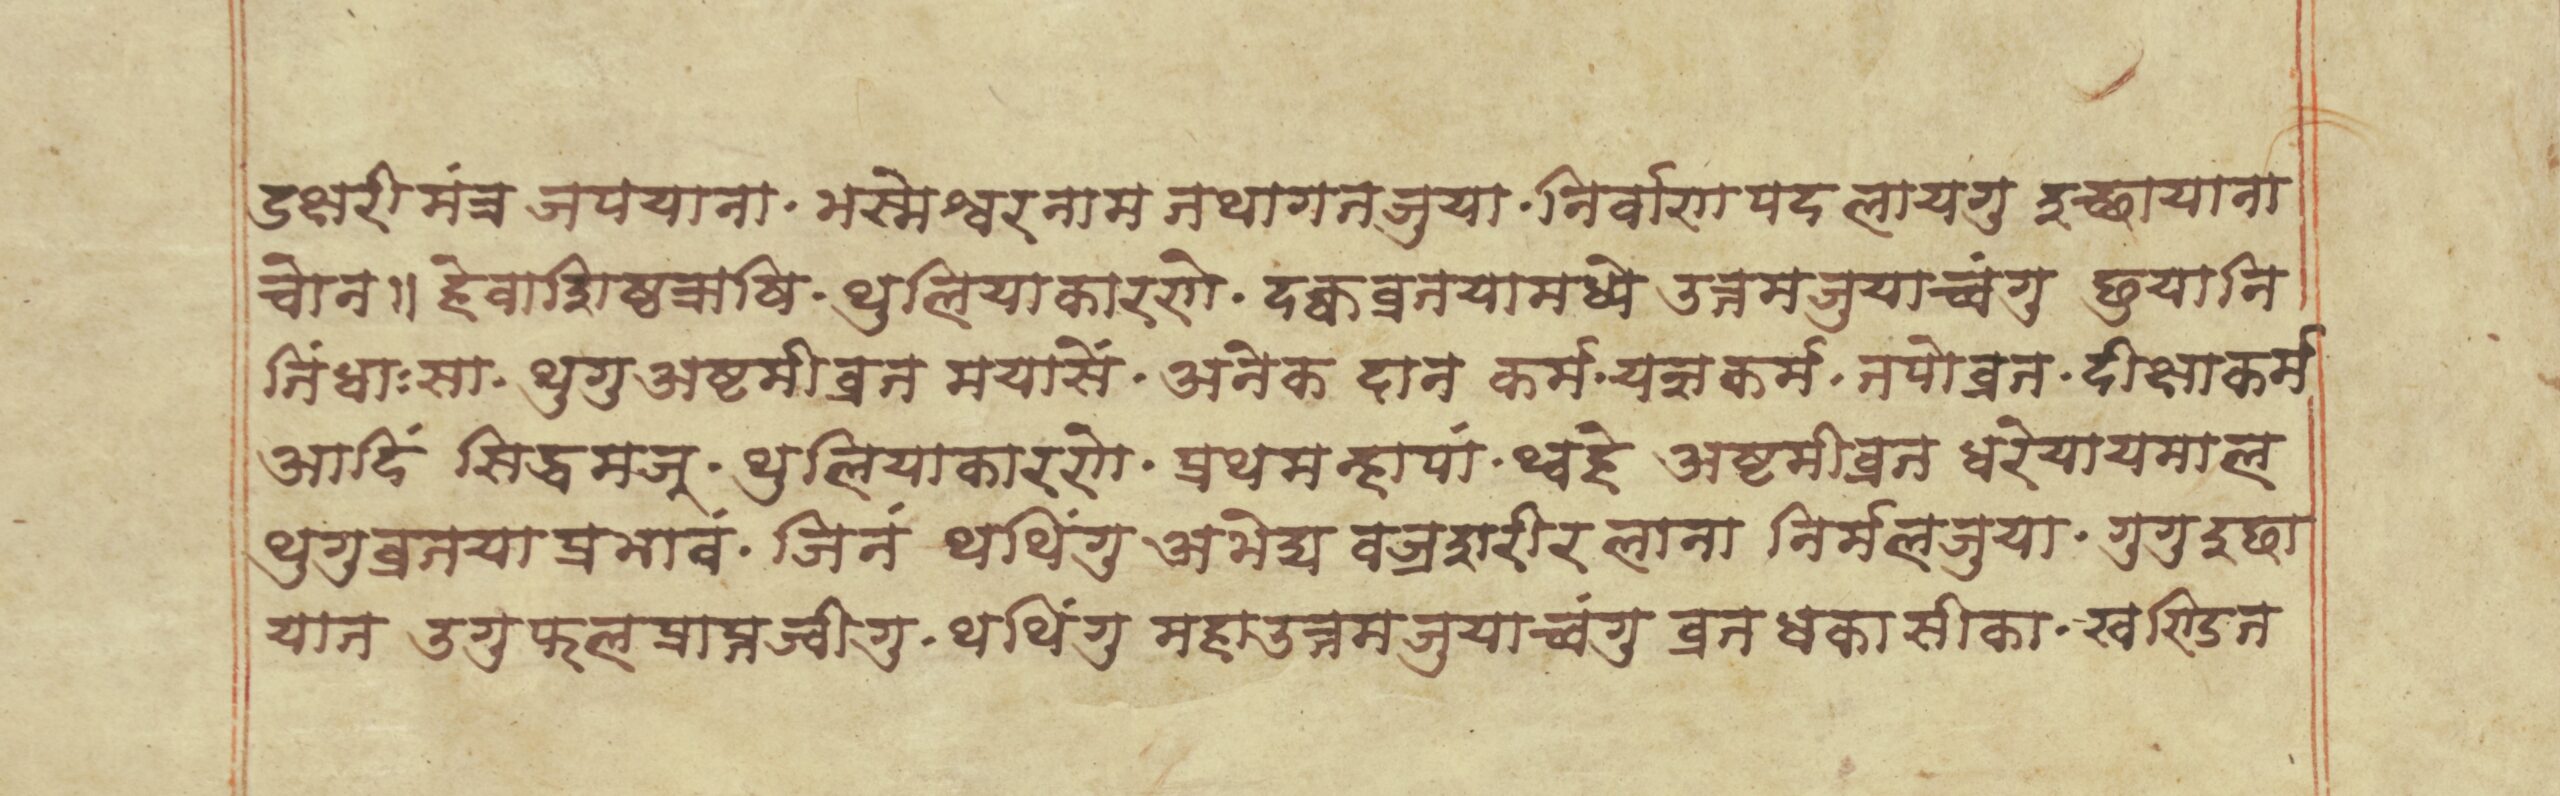 डक्षरी मंत्र जपयाना· भस्मेश्वरनाम तथागतजुया· निर्वाण पद लायगु इच्छायाना
चोन॥ हेवाशिष्ठऋषि· थुलियाकारणे· दक्वब्रतयामध्ये उत्तमजुयाच्वंगु छुयानि
तिंधाःसा· थुगुअष्टमीब्रत मयासें· अनेक दान कर्म· यज्ञकर्म· तपोब्रत· दीक्षाकर्म
आदिं सिद्धमजू· थुलियाकारणे· प्रथमन्हापां· थ्वहे अष्टमीब्रत धरेयायमाल
थुगुब्रतया प्रभावं· जिनं थथिंगु अभेद्य वज्रशरीर लाना निर्मलजुया· गुगुइछा
यात उगु फलप्राप्तज्वीगु· थथिंगु महाउत्तमजुयाच्वंगु ब्रत धका सीका· खण्डित